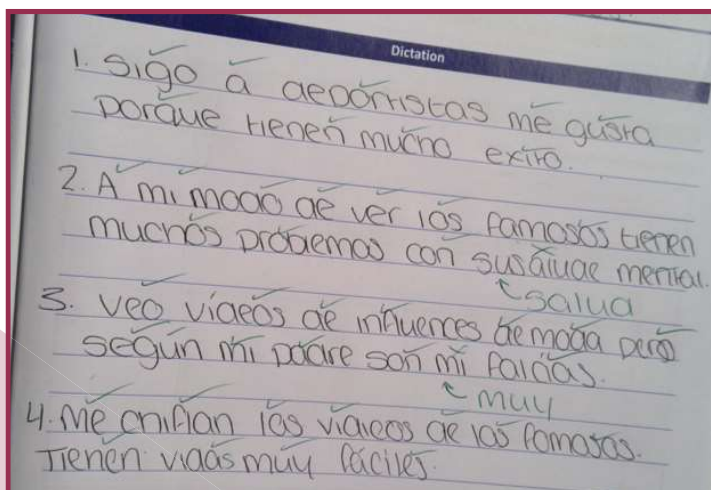 Dictation
1. Sigo a deportistas me gusta
porque tienen mucho exito.
2. A mi modo de ver los famosos tienen
muchos problemas con susalude mental.
salud
3. Veo videos de influences de moda pero
según mi padre son mi faldas.
muy
4. Me chiflan los videos de los famosos.
Tienen vidas muy fáciles.